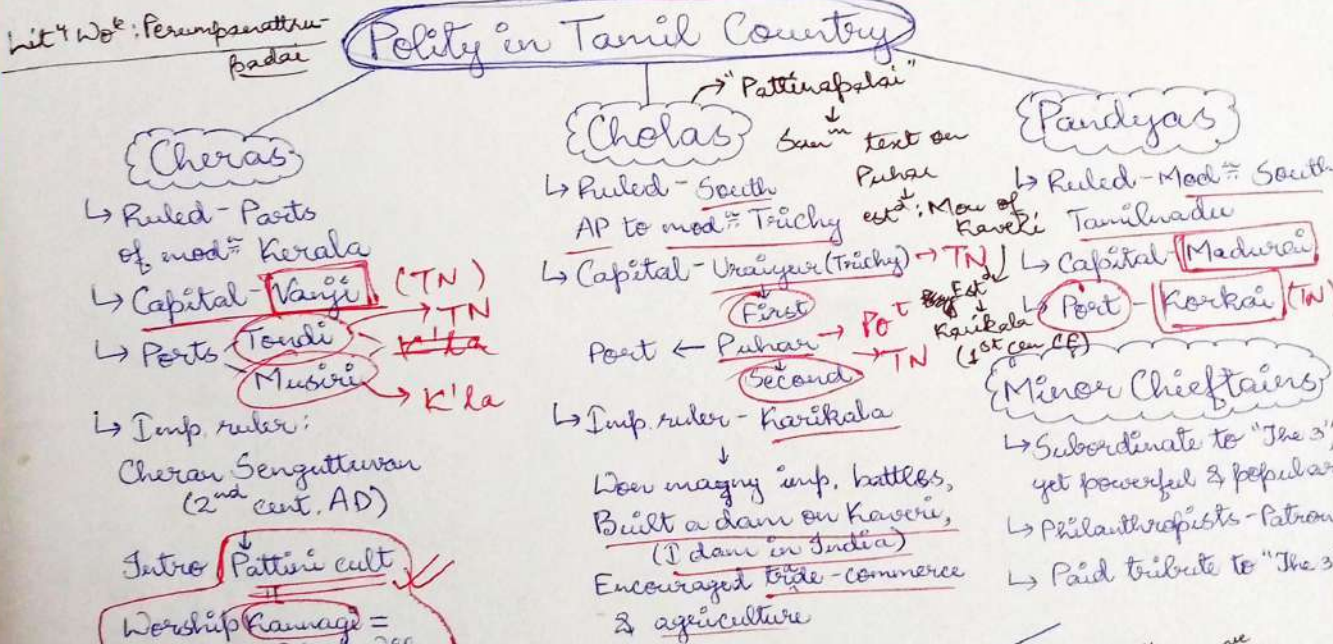 Lit^y Wo^k : Perumpanattru-
padai
Polity in Tamil Country
Cheras
↳ Ruled - Parts
of mod^n Kerala
↳ Capital - Vanji (TN)
↳ Ports - Tondi → TN
K'la
Musiri → K'la
↳ Imp. ruler:
Cheran Senguttuvan
(2nd cent. AD)
Intro Pattini cult
Worship Kannagi =
Cholas
→ "Pattinapalai"
↓
San^m text on
Puhar
est^d : Mou of
Kaveri
↳ Ruled - South
AP to mod^n Trichy
↳ Capital - Uraiyur (Trichy) → TN
First
Est^d
Karikala
(1st cen CE)
Port ← Puhar → Po^t
→ TN
Second
↳ Imp. ruler - Karikala
↓
Won magny imp. battles,
Built a dam on Kaveri,
(I dam in India)
Encouraged trade - commerce
& agriculture
Pandyas
↳ Ruled - Mod^n South
Tamilnadu
↳ Capital - Madurai
↳ Port - Korkai (TN)
Minor Chieftains
↳ Subordinate to "The 3"
yet powerful & popular
↳ Philanthropists - Patron
↳ Paid tribute to "The 3